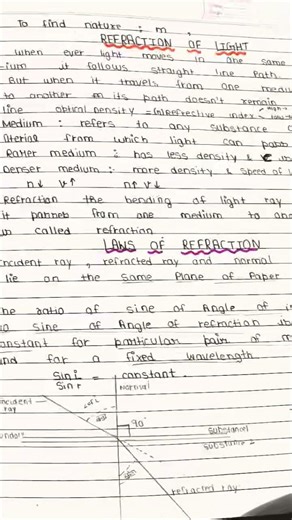 To find nature : m ,
REFRACTION OF LIGHT
when ever light moves in one same
ium it follows straight line path.
But when it travels from one medi
to another m its path doesn't remain
line optical density = (n) Refrective index
Medium : refers to any substance o
aterial from which light can pass
Rarer medium : has less density &
Denser medium :- more density & speed of l
n↓ v↑ n↑ v↓
Refraction the bending of light ray
it passes from one medium to ano
is called refraction
LAWS OF REFRACTION
incident ray , refracted ray and normal
lie on the Same Plane of Paper
he ratio of sine of Angle of i
to sine of Angle of refraction
constant for particular pair of m
and for a fixed wavelength
Sin i = constant .
Sin r
Normal
ncident
ray
90
substance1
substance
refracted ray